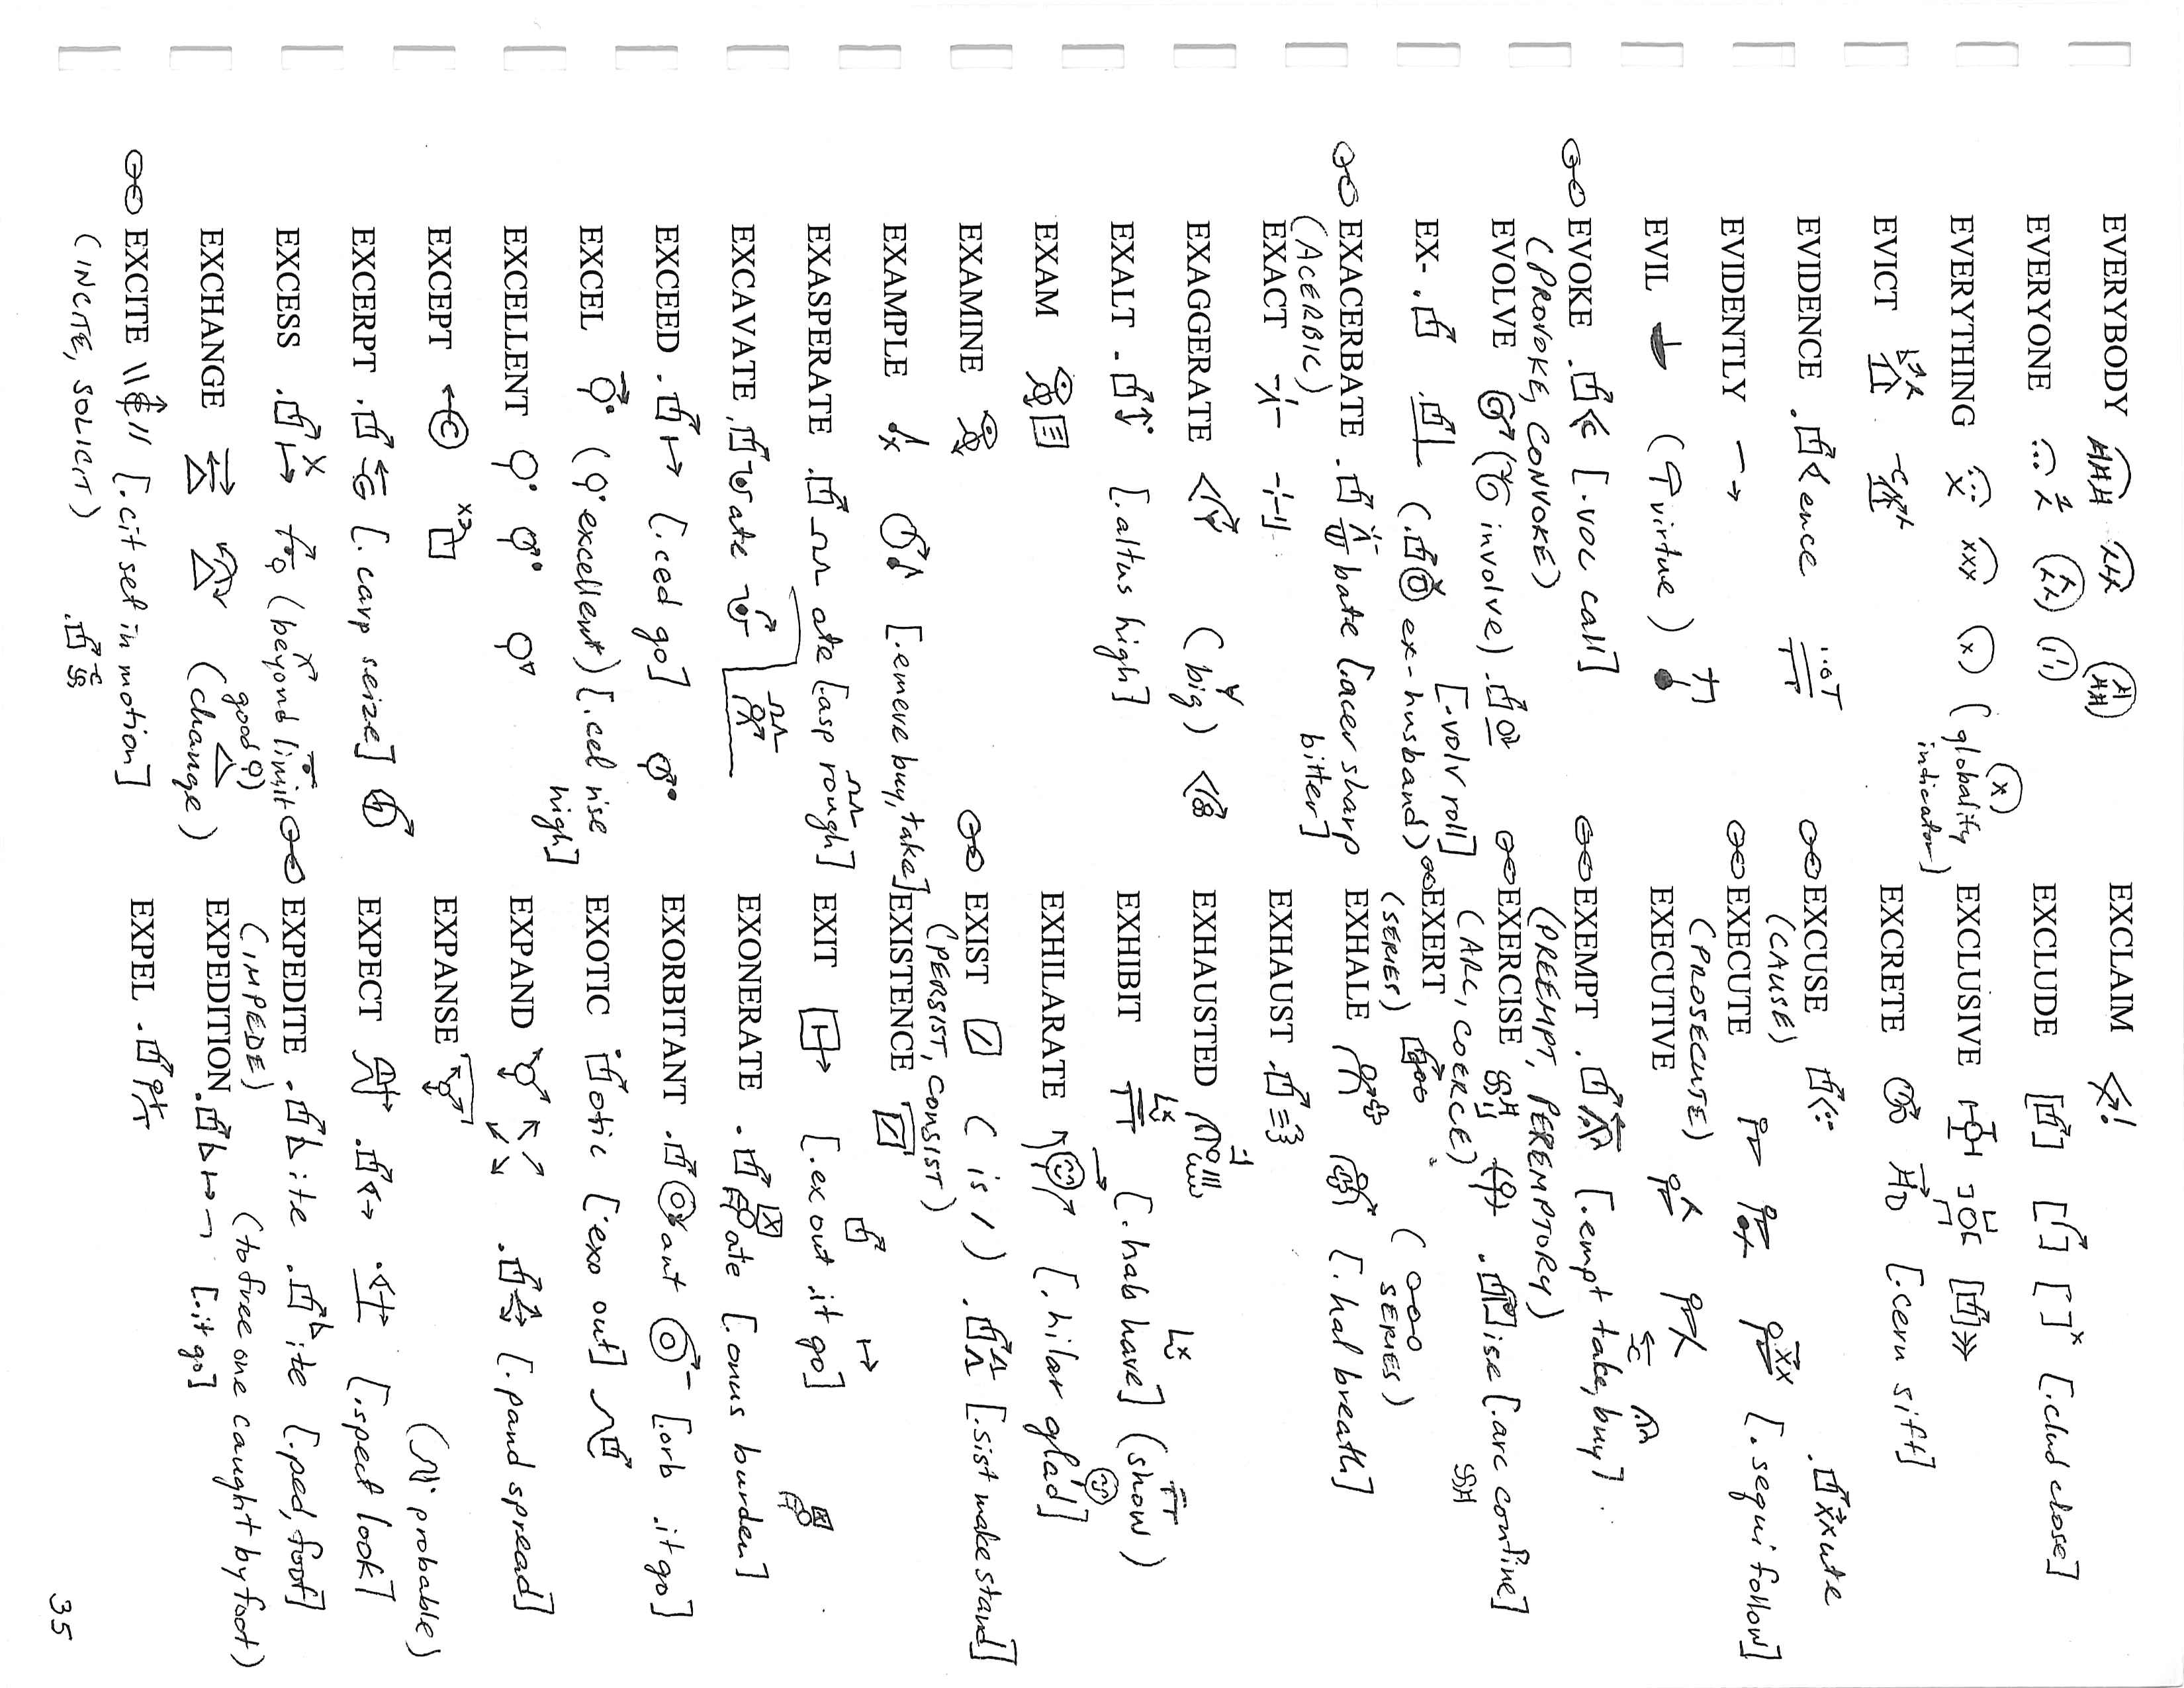 EVERYBODY
EVERYONE
EVERYTHING (globality indicator)
EVICT
EVIDENCE ence
EVIDENTLY
EVIL (virtue)
EVOKE [.voc call]
(PROVOKE, CONVOKE)
EVOLVE (involve) [.volv roll]
EX- (ex-husband)
EXACERBATE bate [.acer sharp bitter]
(ACERBIC)
EXACT
EXAGGERATE (big)
EXALT [.altus high]
EXAM
EXAMINE
EXAMPLE [.emere buy, take]
EXASPERATE ate [.asp rough]
EXCAVATE ate
EXCEED [.ced go]
EXCEL (excellent) [.cel rise high]
EXCELLENT
EXCEPT
EXCERPT [.carp seize]
EXCESS (beyond limit good)
EXCHANGE (change)
EXCITE [.cit set in motion]
(INCITE, SOLICIT)
EXCLAIM
EXCLUDE [.clud close]
EXCLUSIVE
EXCRETE [.cern sift]
EXCUSE
(CAUSE) ute
EXECUTE [.sequi follow]
(PROSECUTE)
EXECUTIVE
EXEMPT [.empt take, buy]
(PREEMPT, PEREMPTORY)
EXERCISE ise [.arc confine]
(ARC, COERCE)
EXERT (SERIES)
(SERIES)
EXHALE [.hal breath]
EXHAUST
EXHAUSTED
EXHIBIT [.hab have] (show)
EXHILARATE [.hilar glad]
EXIST (is) [.sist make stand]
(PERSIST, CONSIST)
EXISTENCE
EXIT [.ex out .it go]
EXONERATE ate [.onus burden]
EXORBITANT ant [.orb .it go]
EXOTIC otic [.exo out]
EXPAND [.pand spread]
EXPANSE
EXPECT [.spect look] (probable)
EXPEDITE ite ite [.ped, foot]
(IMPEDE) (to free one caught by foot)
EXPEDITION [.it go]
EXPEL
35